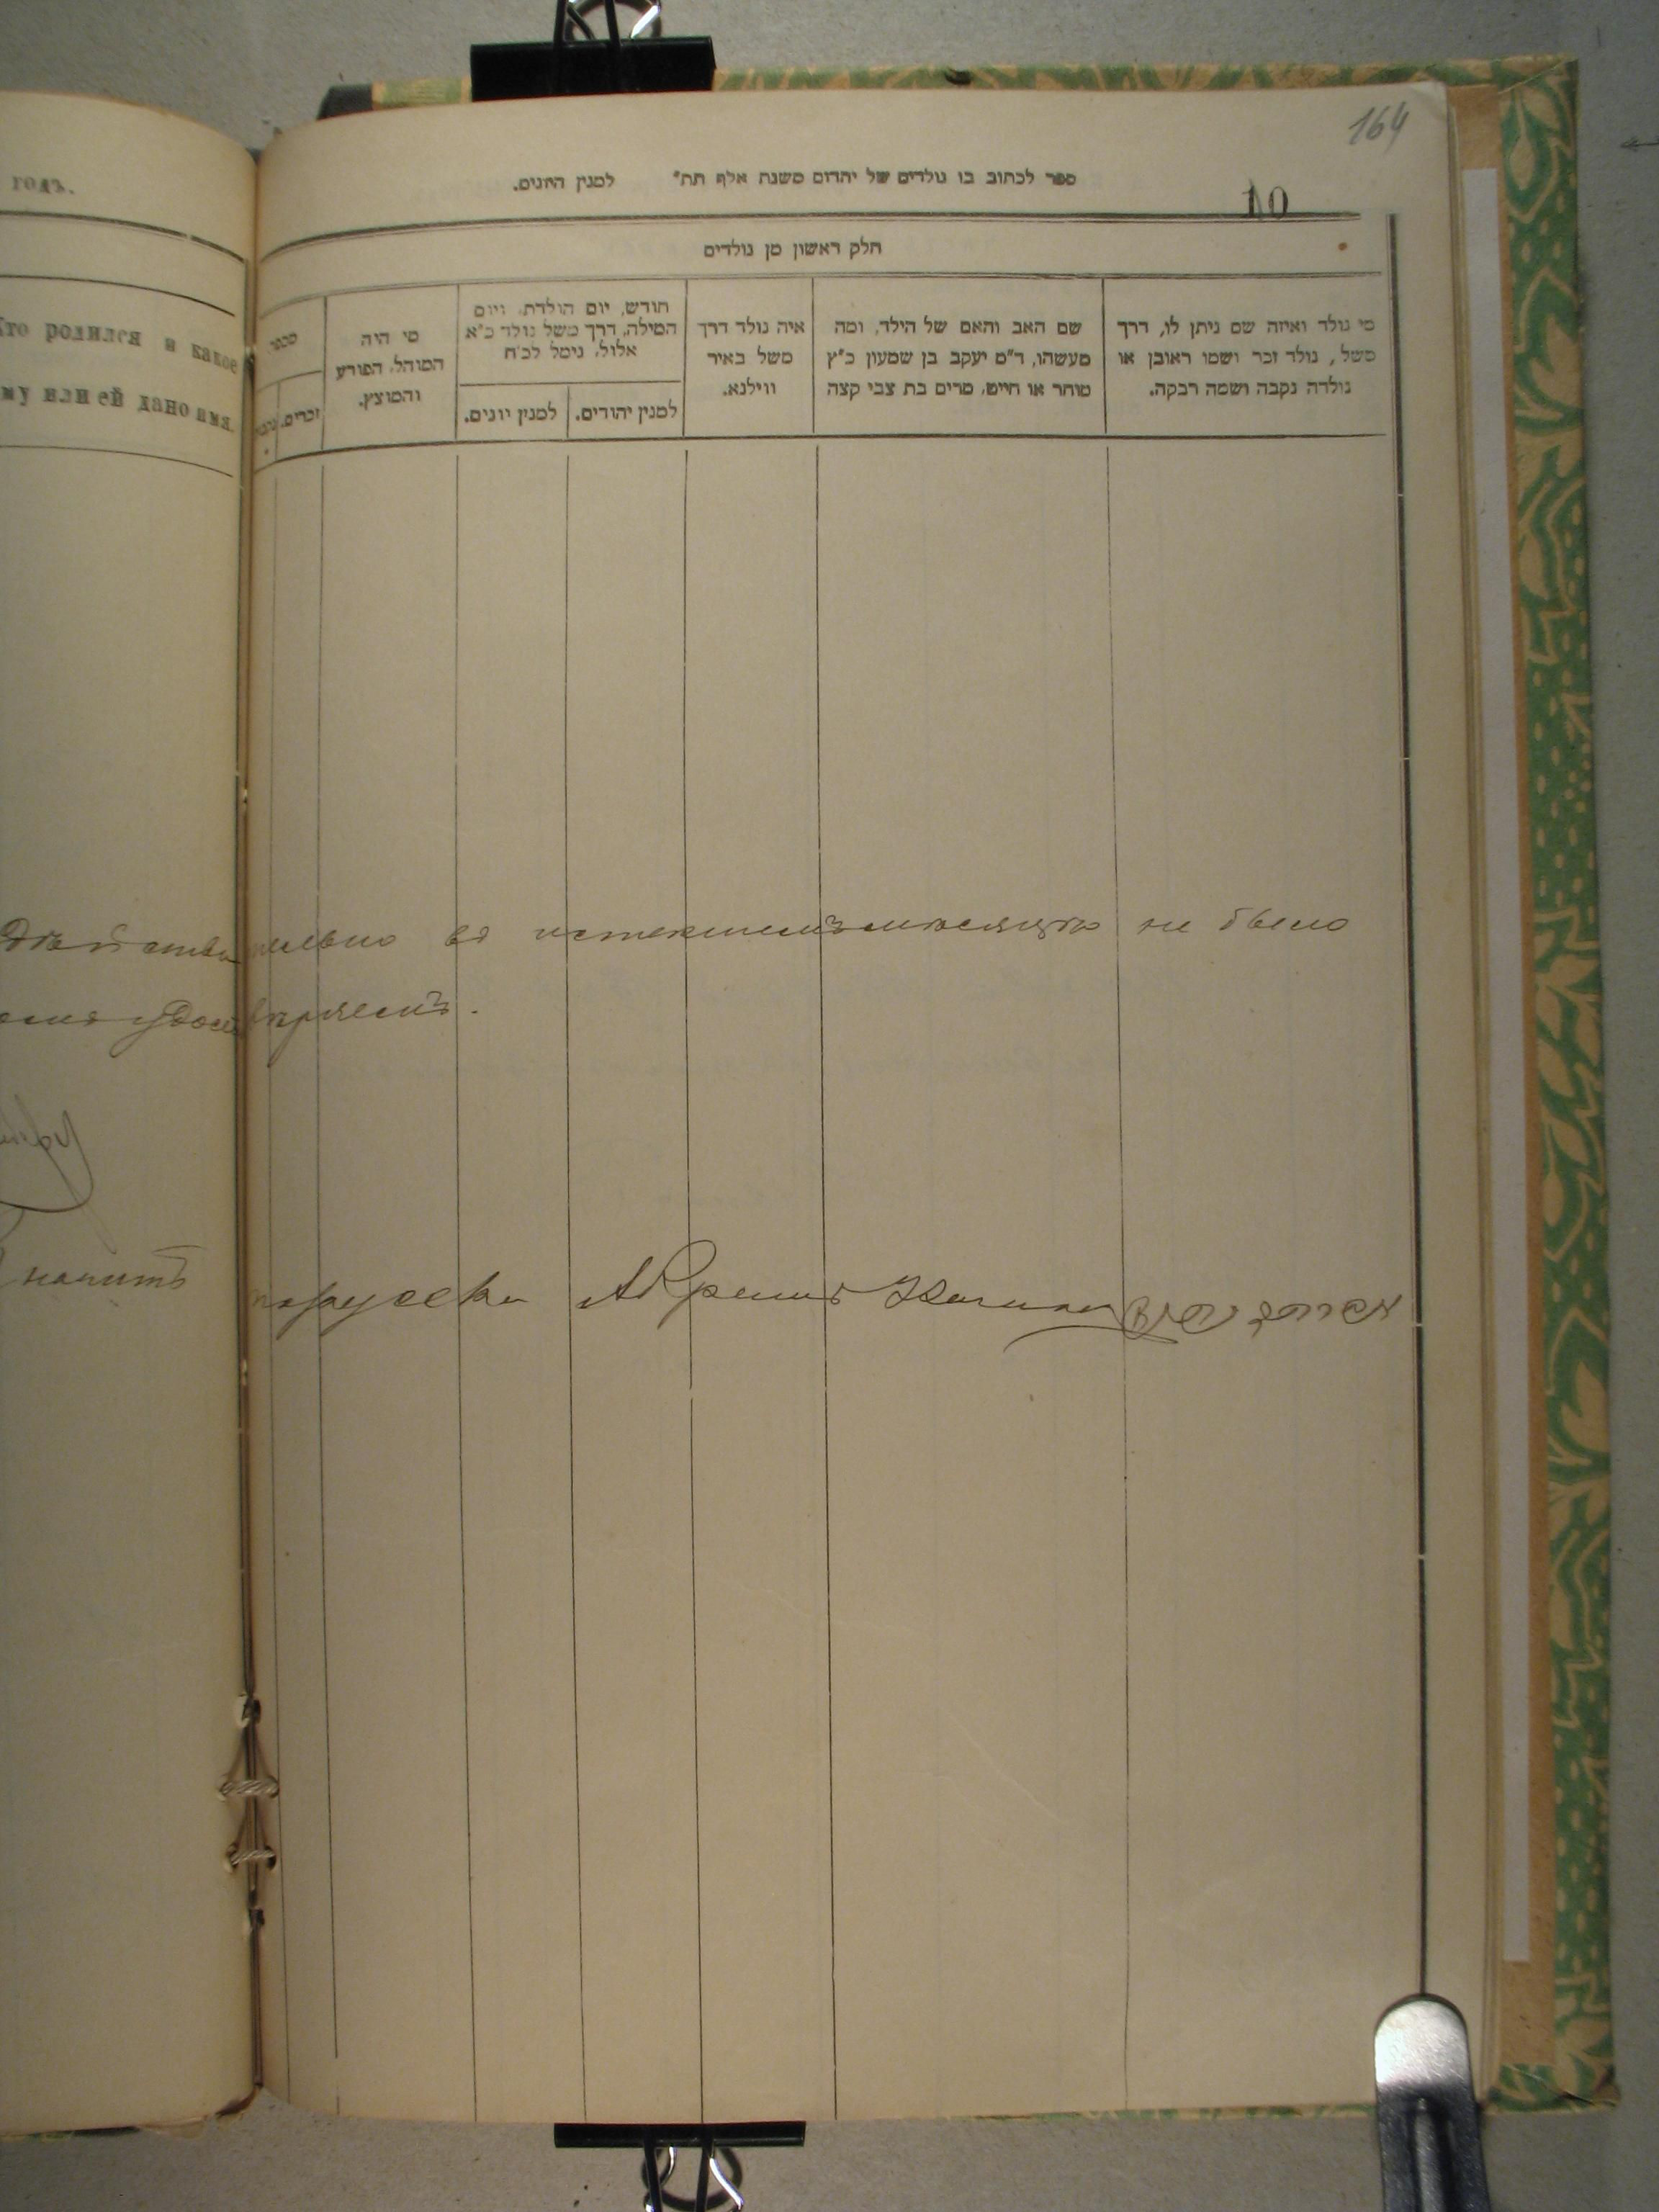 164
годъ.
ספר לכתוב בו נולדים של יהדום משנת אלף תת״ למנין היונים.
10
חלק ראשון מן נולדים
מי נולד ואיזה שם ניתן לו, דרך
משל, נולד זכר ושמו ראובן או
נולדה נקבה ושמה רבקה.
שם האב והאם של הילד, ומה
מעשהו, ד״מ יעקב בן שמעון כ״ץ
סוחר או חייט, מרים בת צבי קצה
איה נולד דרך
משל באיר
ווילנא.
חודש, יום הולדת, ויום
המילה, דרך משל נולד כ״א
אלול, נימל לכ״ח
למנין יהודים.
למנין יונים.
מי היה
המוהל, הפורע
והמוצץ.
מספר
זכרים.
Кто родился и какое
ему или ей дано имя.
Действительно въ истекшемъ месяце не было
удостоверяемъ.